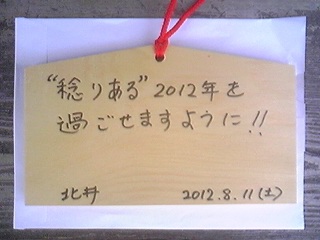 “稔りある”2012年を
過ごせますように!!
北井 2012.8.11(土)